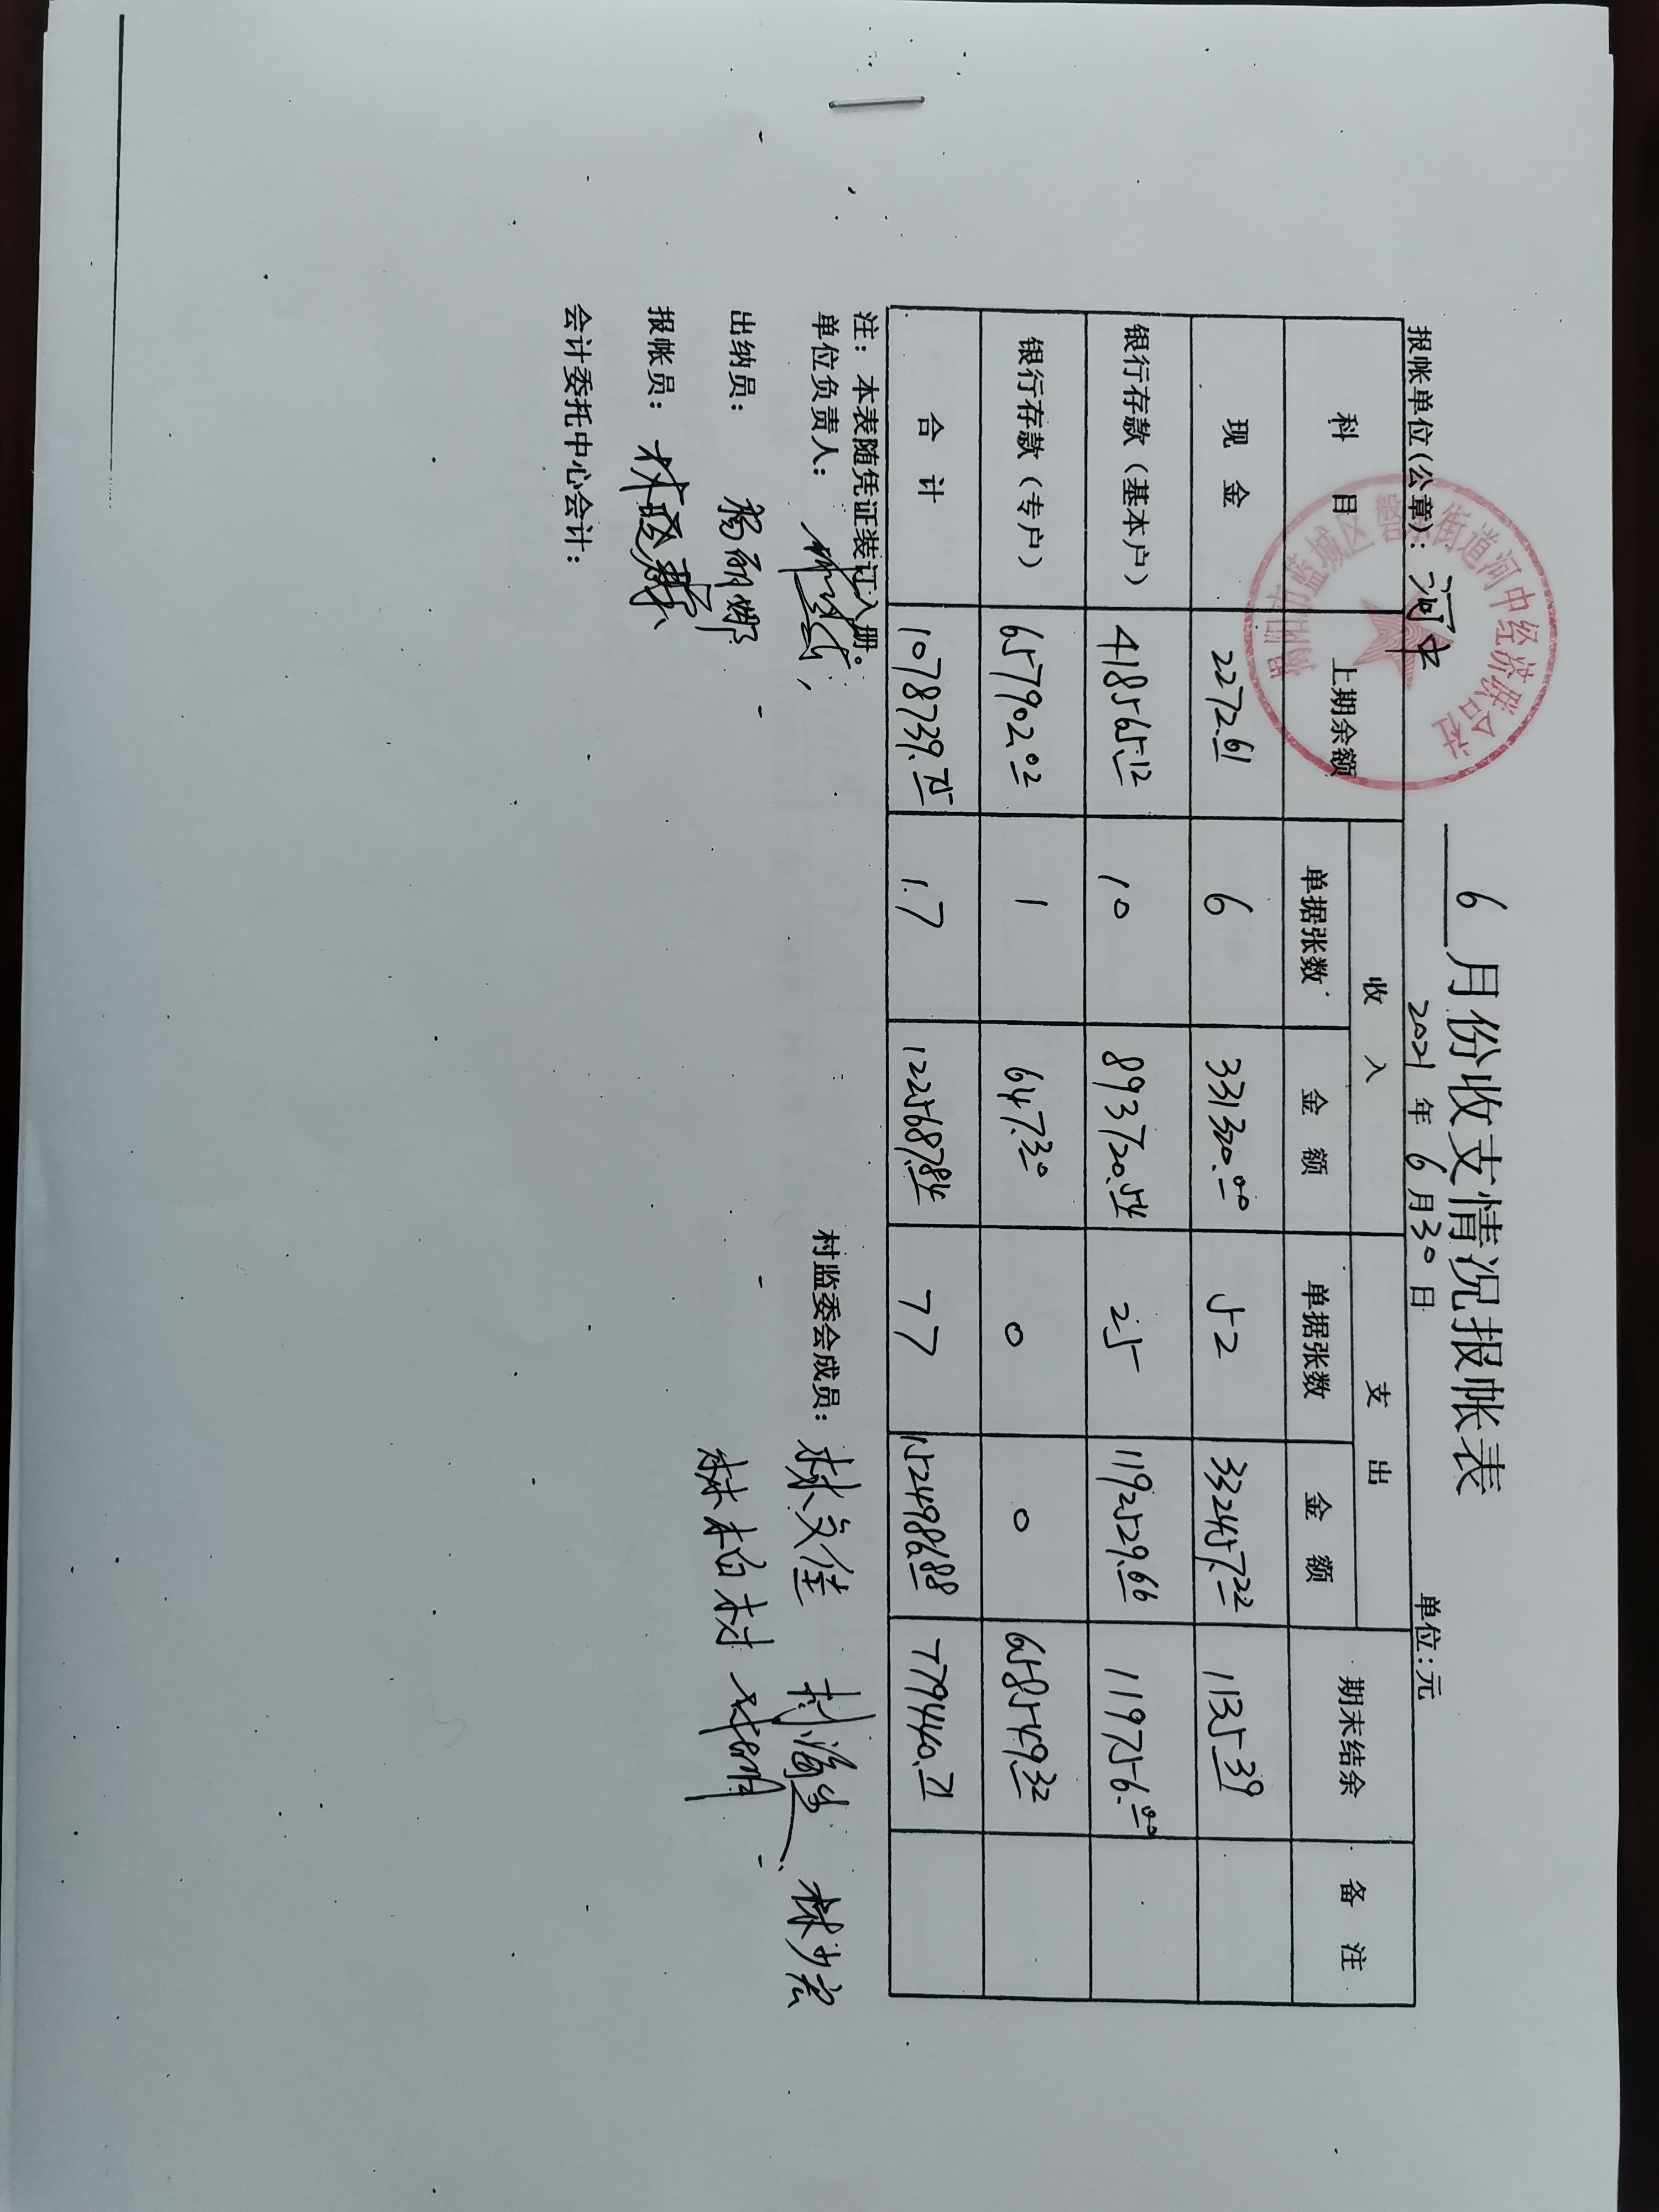 6月份收支情况报帐表
报帐单位(公章): 河中 2021年6月30日 单位:元
街道河中经济联合社
科 目 上期余额 收 入 支 出 期末结余 备 注
单据张数 金 额 单据张数 金 额
现 金 2272.61 6 331320.00 52 332457.22 1135.39
银行存款(基本户) 418565.12 10 893720.54 25 1192529.66 119756.00
银行存款(专户) 657902.02 1 647.30 0 0 658549.32
合 计 1078739.75 17 1225687.84 77 1524986.88 779440.71
注: 本表随凭证装证入册。
单位负责人: 村监委会成员: 林文佳 林少宏
出纳员: 杨丽娜 林柏材
报帐员:
会计委托中心会计: